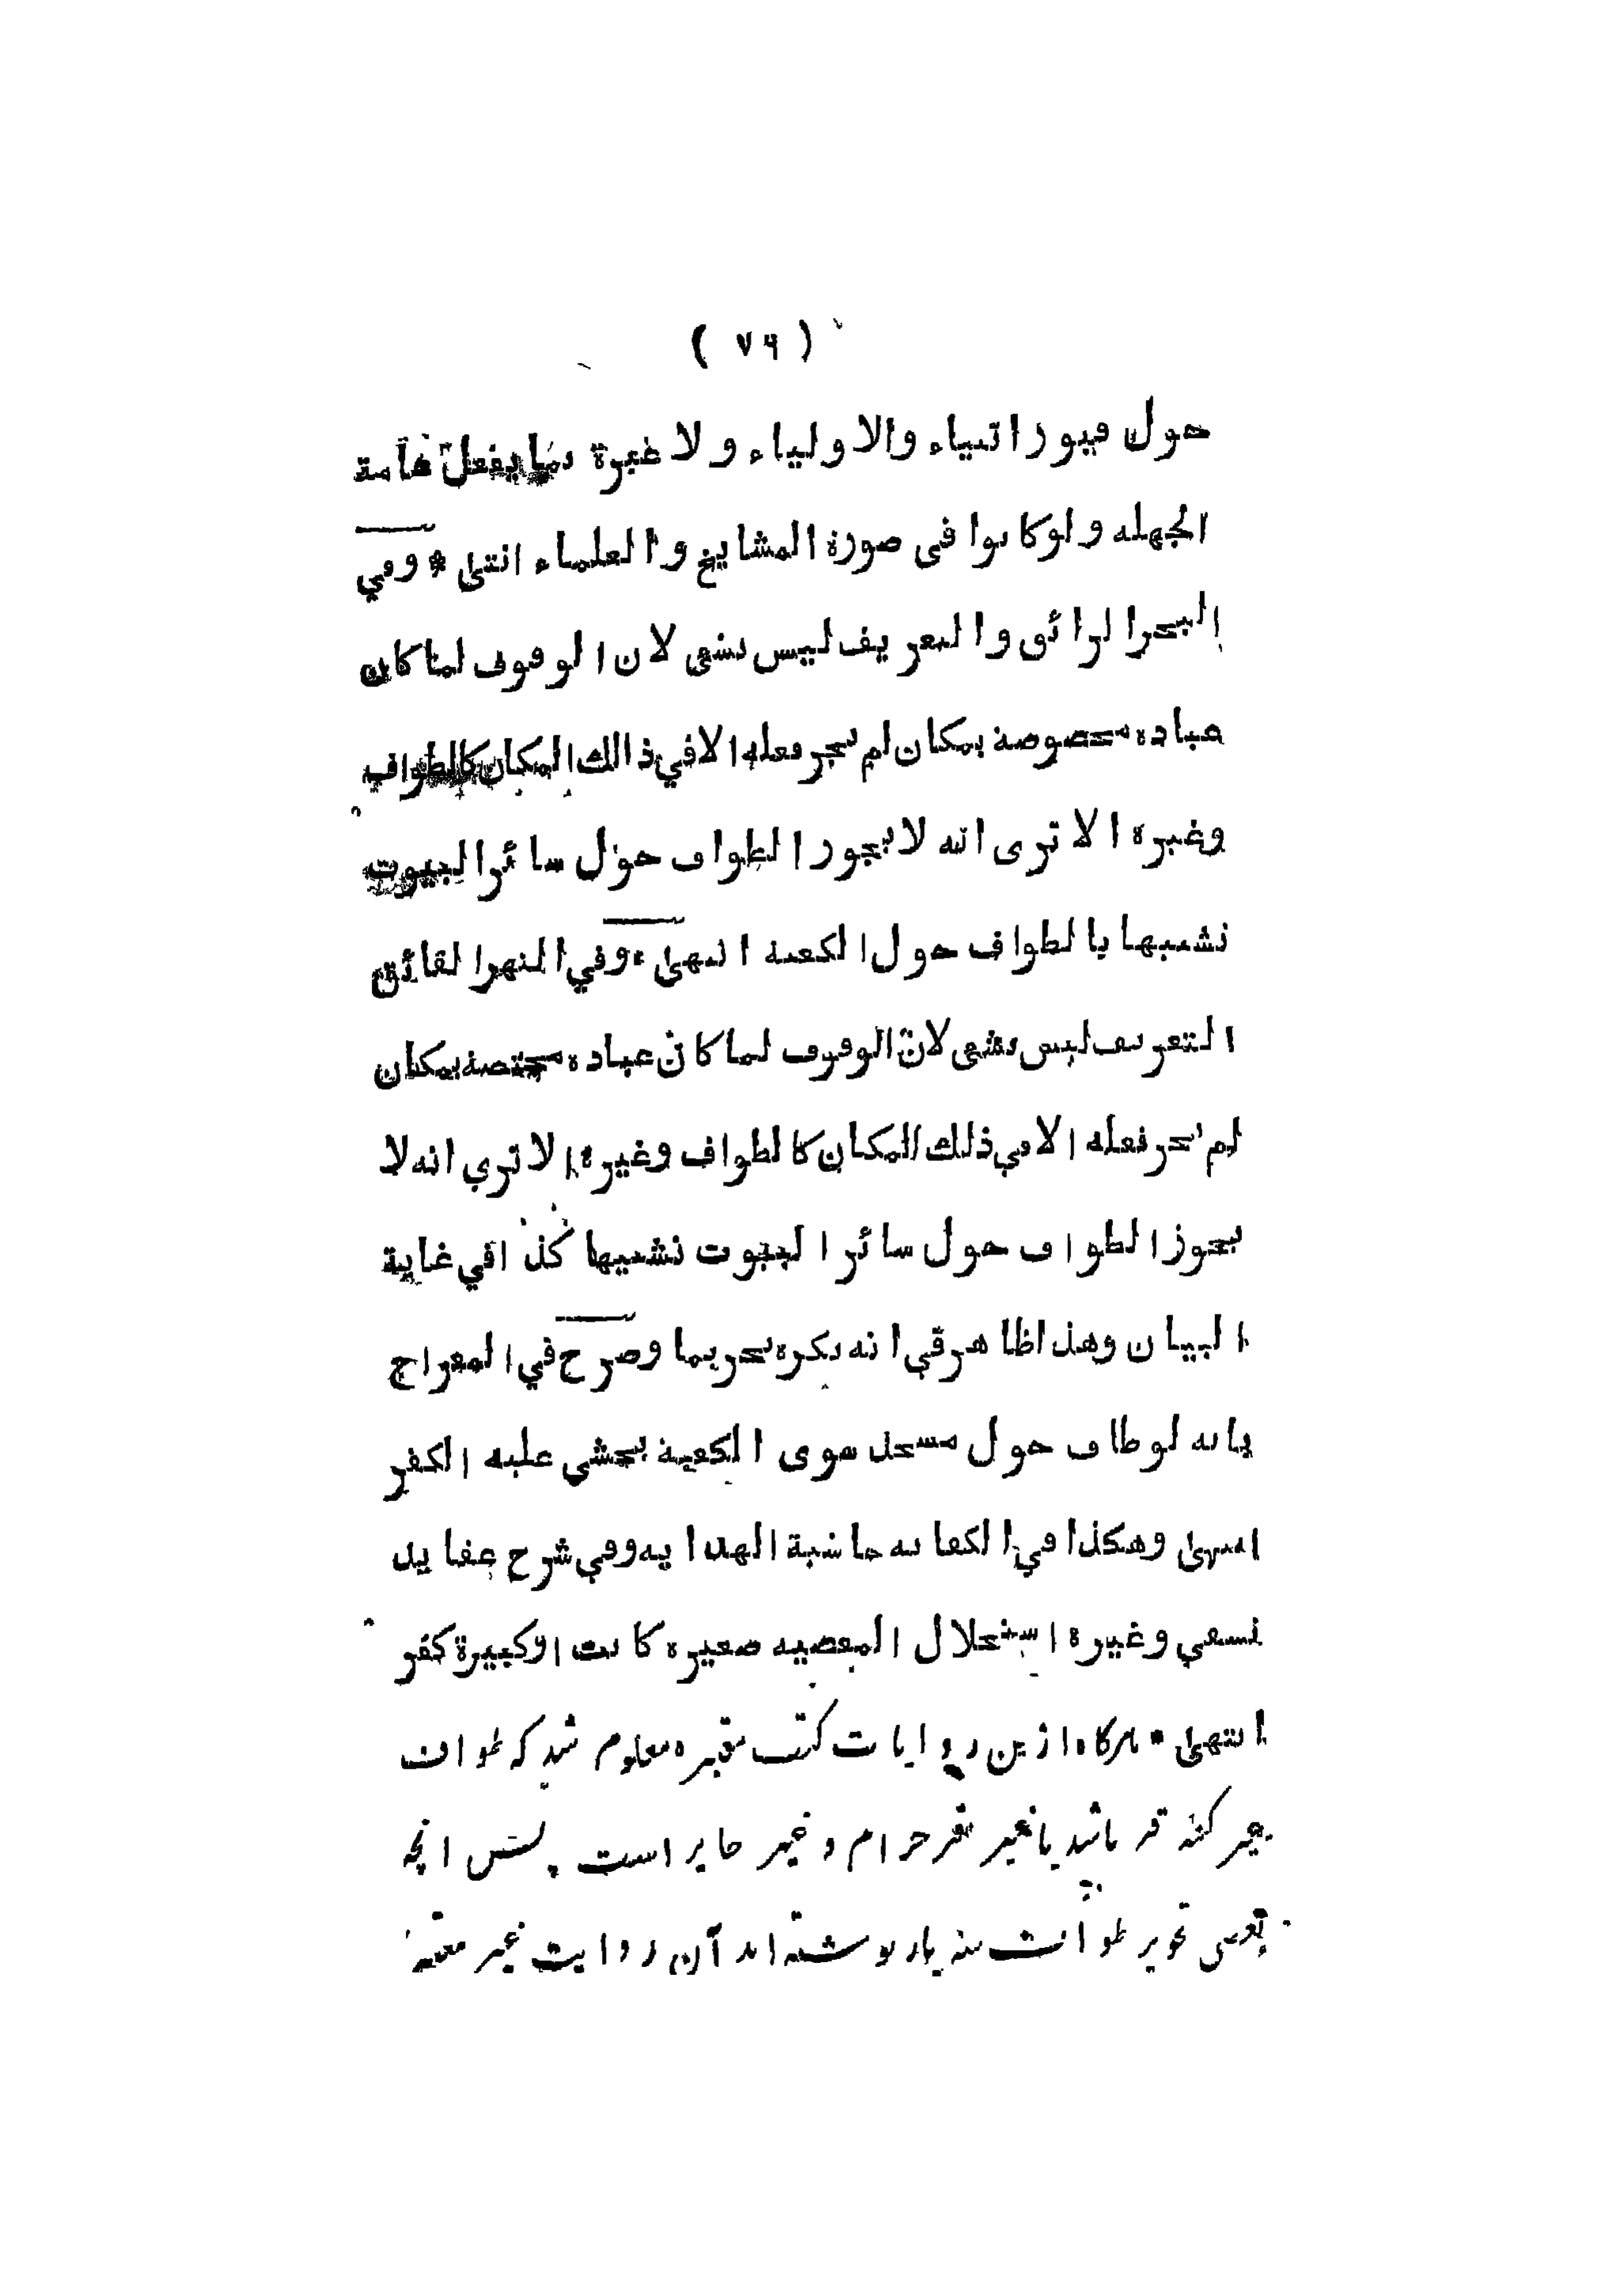 ( ٧٦ )
حول قبور انبياء والاولياء ولا عبرة بما يفعل عامة
الجهله ولو كانوا فى صورة المشايخ والعلماء انتهى * وفي
البحر الرائق والتعريف ليس بشى لان الوقوف لما كان
عباده مخصوصة بمكان لم يجز فعله الا في ذالك المكان كالطواف
وغيره الا ترى انه لا يجوز الطواف حول سائر البيوت
تشبيها بالطواف حول الكعبة انتهى * وفي النهر الفائق
التعريف ليس بشى لان الوقوف لما كان عباده مختصة بمكان
لم يجز فعله الا في ذلك المكان كالطواف وغيره الا تري انه لا
يجوز الطواف حول سائر البيوت تشبيها كذا في غاية
البيان وهذا ظاهر في انه يكره تحريما وصرح في المعراج
بانه لو طاف حول مسجد سوى الكعبة يخشي عليه الكفر
انتهى وهكذا في الكفايه حاشية الهدايه وفي شرح عقايد
نسفي وغيره استحلال المعصيه صغيره كانت او كبيرة كفر
انتهى * هرگاه ازين روايات كتب معتبره معلوم شد كه طواف
بغير كعبه قبر باشد يا غير قبر حرام و غير جايز است پس انچه
بعض تجويز طواف سه بار نوشته اند آن روايت غير معتبه